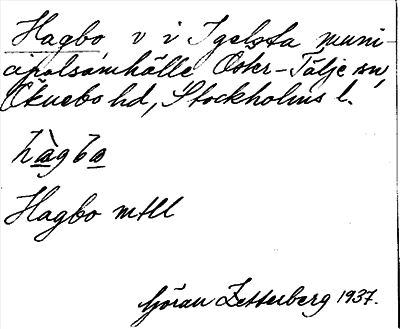 Hagbo, v i Igelsta muni-
cipalsamhälle Öster-Tälje sn,
Öknebo hd, Stockholms l.
hàgbo
Hagbo mtll
Göran Zetterberg 1937.